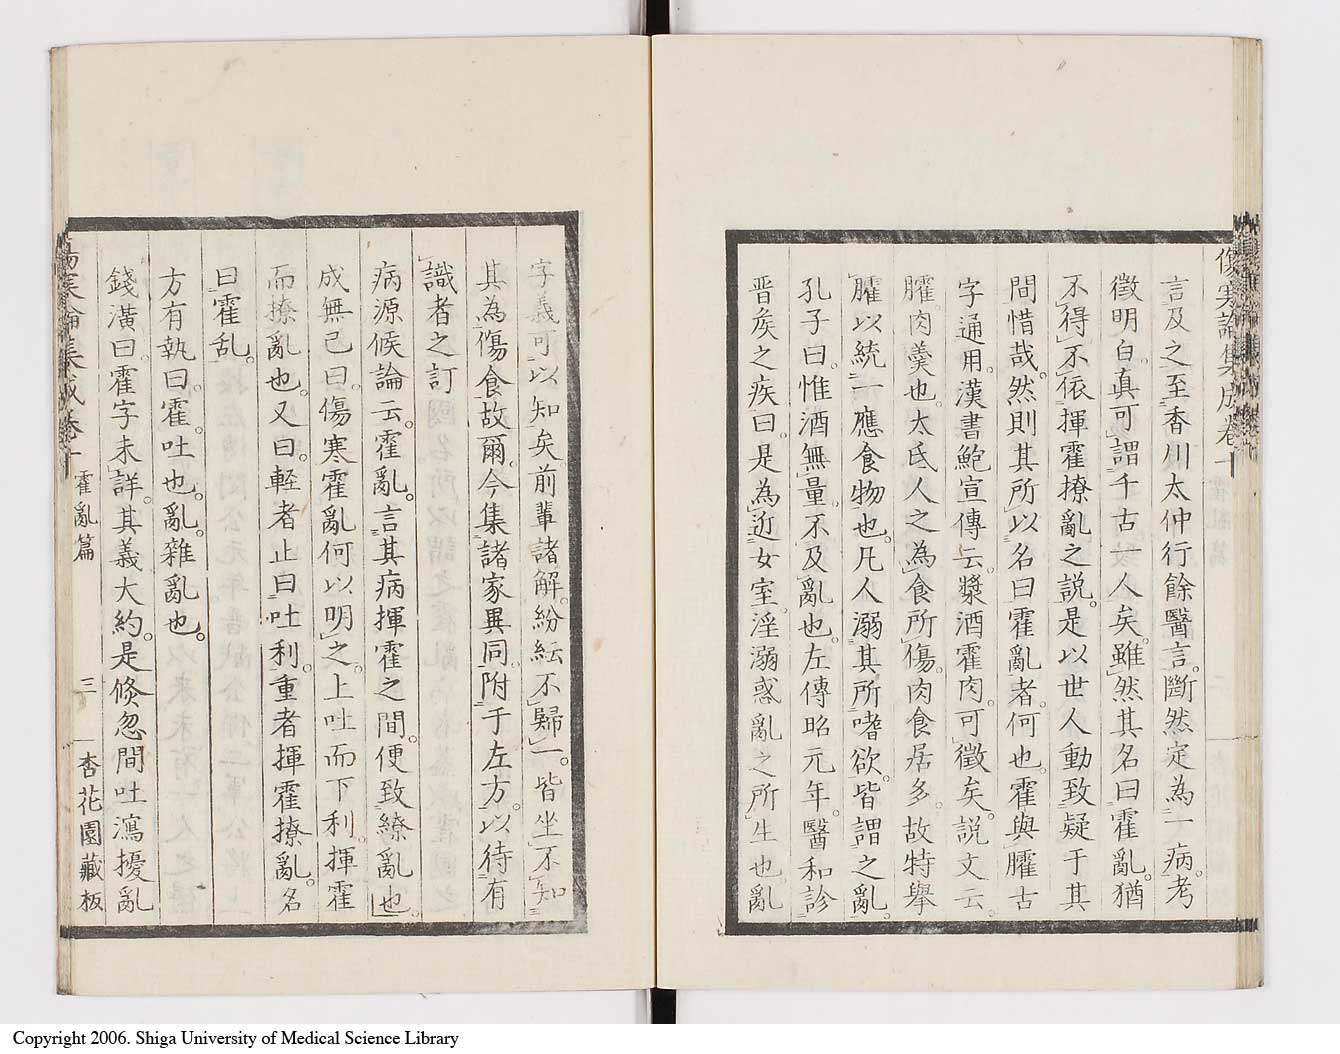 傷寒論集成卷十
言及之。至香川太仲行餘醫言。斷然定為一病。考
徵明白。真可謂千古一人矣。雖然其名曰霍亂。猶
不得不依揮霍撩亂之說。是以世人動致疑于其
間。惜哉。然則其所以名曰霍亂者。何也。霍與臛古
字通用。漢書鮑宣傳云。漿酒霍肉。可徵矣。說文云。
臛。肉羹也。太氐人之為食所傷。肉食居多。故特舉
臛以統一應食物也。凡人溺其所嗜欲。皆謂之亂。
孔子曰。惟酒無量。不及亂也。左傳昭元年。醫和診
晋矦之疾曰。是為近女室。淫溺惑亂之所生也。亂
字義可以知矣。前輩諸解。紛紜不歸一。皆坐不知
其為傷食故爾。今集諸家異同。附于左方。以待有
識者之訂
病源候論云。霍亂。言其病揮霍之間。便致繚亂也。
成無己曰。傷寒霍亂何以明之。上吐而下利。揮霍
而撩亂也。又曰。軽者止曰吐利。重者揮霍撩亂。名
曰霍乱。
方有執曰。霍。吐也。亂。雜亂也。
錢潢曰。霍字未詳。其義大約。是倏忽間吐瀉擾亂
傷寒論集成卷十 霍亂篇 三 杏花園藏板
Copyright 2006. Shiga University of Medical Science Library